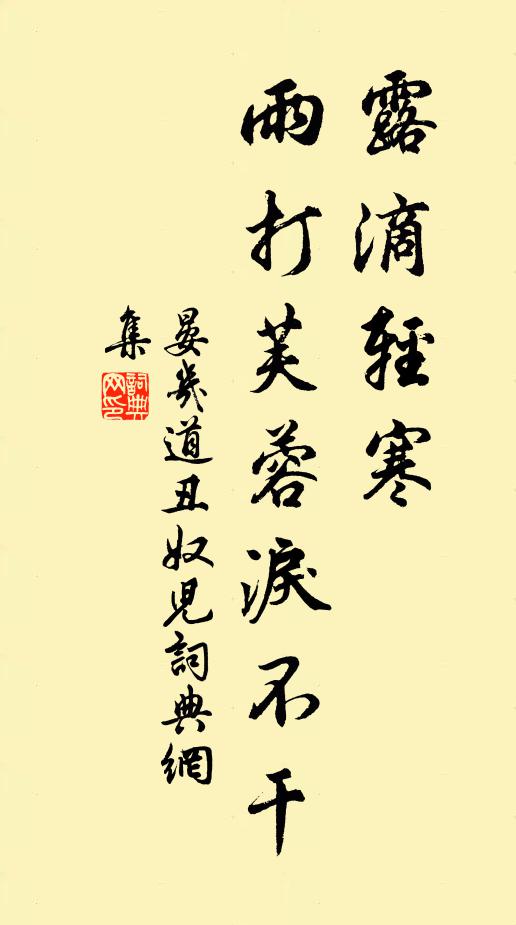 露滴輕寒
雨打芙蓉淚不干
晏幾道丑奴兒詞典網
集
詞典
网印